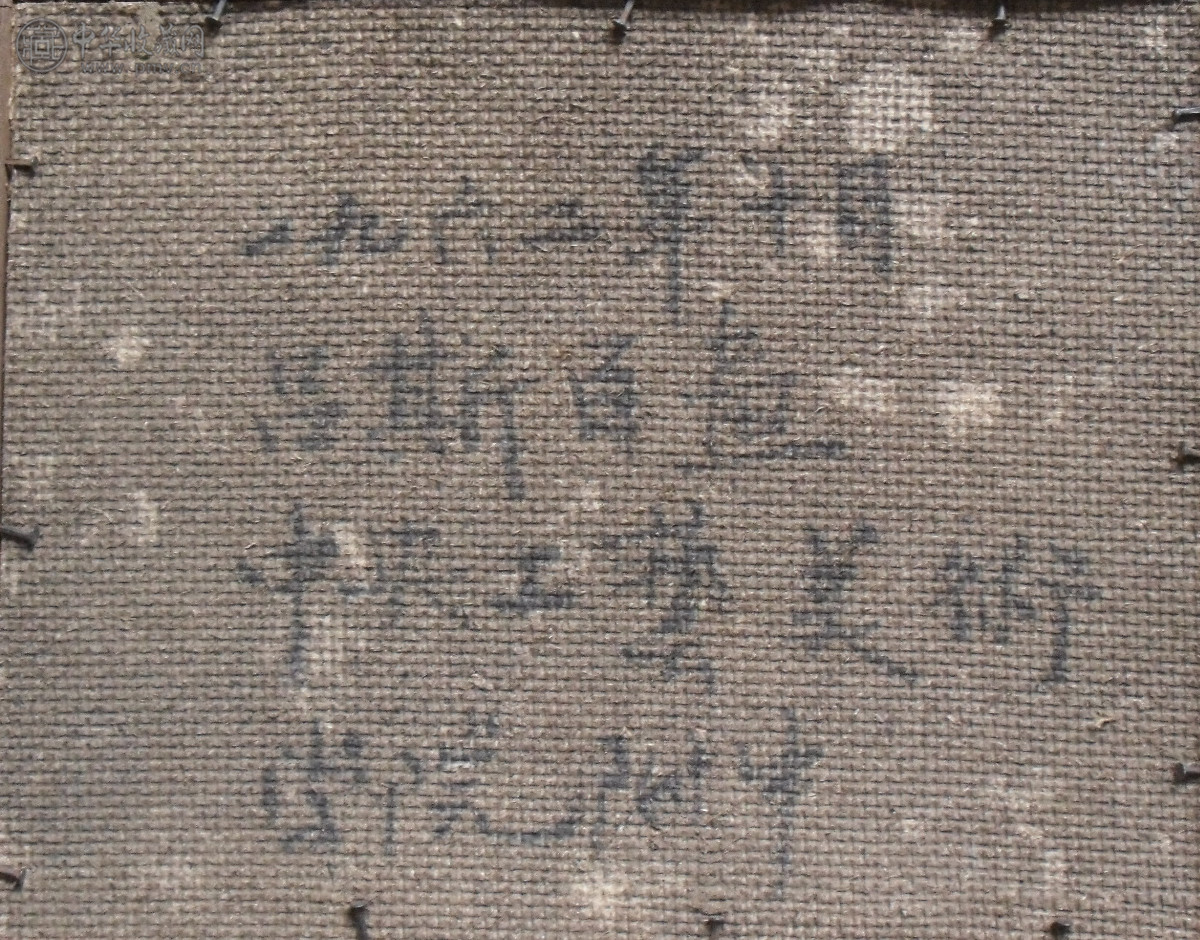 中华收藏网
一九六二年十月
吕斯百画
中央工艺美术
学院附中